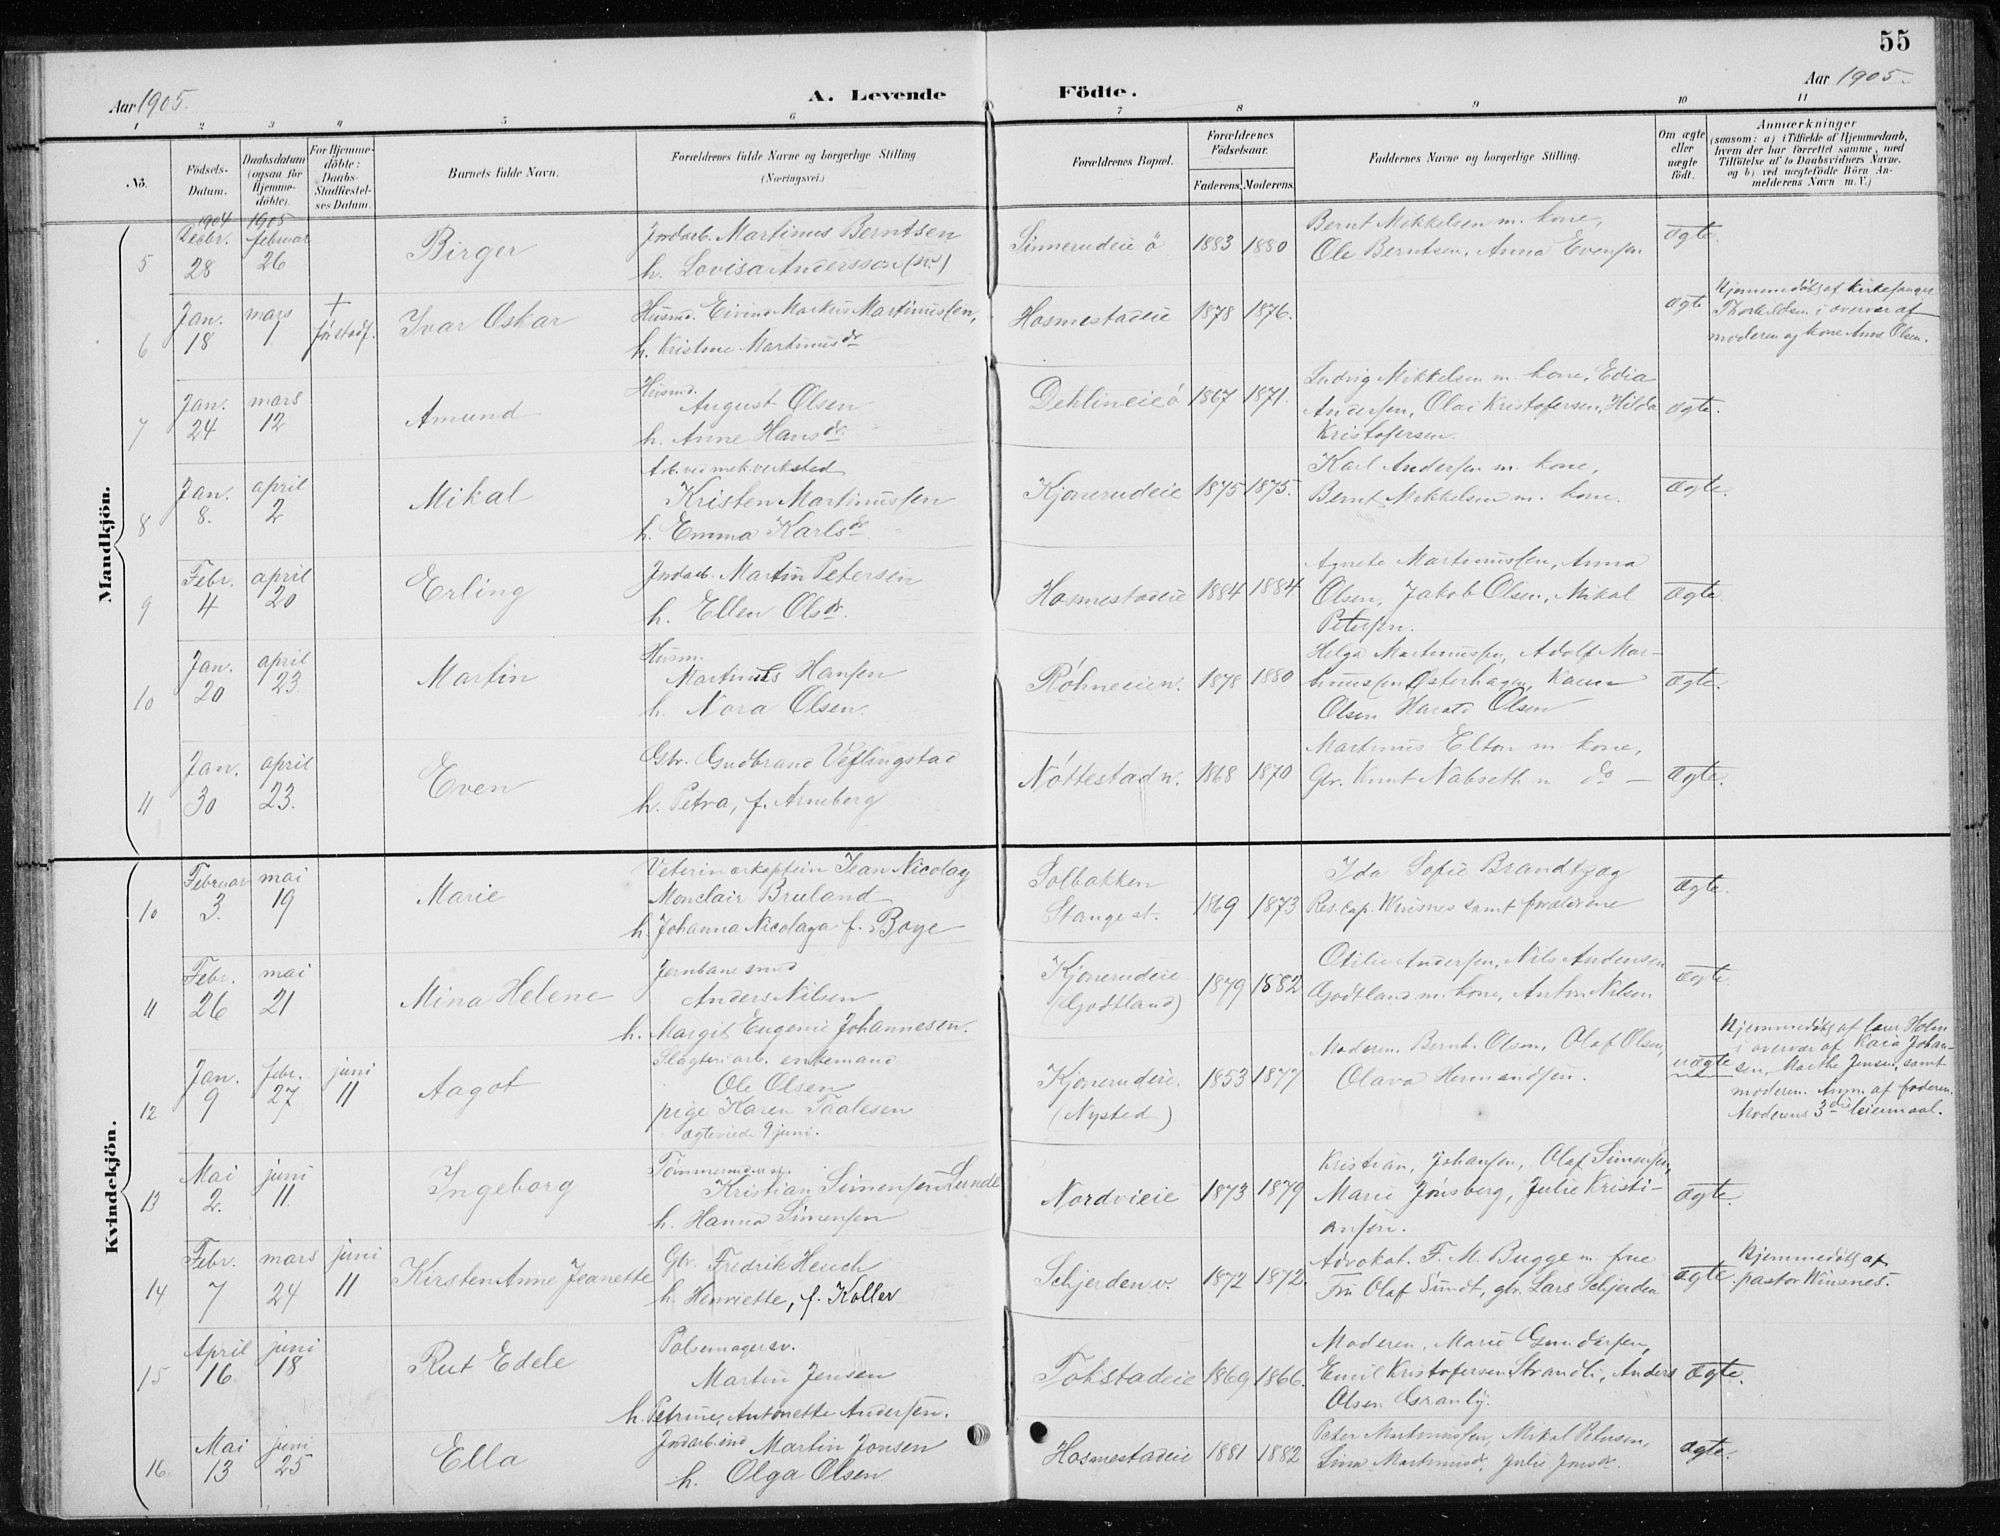 55
Aar 1905.
A. Levende
Födte.
Aar 1905.
1 2 3 4 5 6 7 8 9 10 11
No.
Födsels-Datum.
Daabsdatum (ogsaa for Hjemmedöbte).
For Hjemmedöbte: Daabs-Stadfæstelses Datum.
Barnets fulde Navn.
Forældrenes fulde Navne og borgerlige Stilling (Næringsvei.)
Forældrenes Bopæl.
Forældrenes Födselsaar.
Faderens. Moderens.
Faddernes Navne og borgerlige Stilling.
Om ægte eller uægte födt.
Anmærkninger
(saasom: a) i Tilfælde af Hjemmedaab, hvem der har forrettet samme, med Tilföielse af to Daabsvidners Navne, og b) ved uægtefödte Börn Anmelderens Navn m. V.)
Mandkjön.
1904 1905
5
Decbr. 28
februar 26
Birger
Jordarb. Martinus Berntsen
h. Lovisa Andersson (sv.)
Sinnerudeie ö
1883 1880
Bernt Mikkelsen m. kone,
Ole Berntsen, Anna Evensen
ægte.
6
Jan. 18
mars 1
+
Ivar Oskar
Husmd. Eivind Markus Martinussen,
h. Kristine Martinusdr
Hosmestadeie
1878 1876.
ægte
Hjemmedöbt af kirkesanger
Thorkildsen i overvær af
moderen og kone Anne Olsen.
7
Jan. 24
mars 12
Amund
Husmd.
August Olsen
h. Anne Hansdr.
Dehlineie ö
1867 1871.
Ludvig Mikkelsen m. kone, Edia
Andersen, Olai Kristofersen, Hilda
Kristofersen.
ægte.
8
Jan. 8.
april 2
Mikal
Arb. ved mek verksted
Kristen Martinussen
h. Emma Karlsdr.
Kjonerudeie
1875 1875.
Karl Andersen m. kone,
Bernt Mikkelsen m. kone.
ægte.
9
Febr. 4
april 20
Erling
Jordarb. Martin Petersen
h. Ellen Olsdr.
Hosmestadeie
1884 1884
Agnete Martinussen, Anna
Olsen, Jakob Olsen, Mikal
Petersen.
ægte.
10
Jan. 20
april 23.
Martin
Husm.
Martinus Hansen
h. Nora Olsen.
Röhneeie n.
1878 1880
Helga Martinussen, Adolf Mar-
tinussen Österhagen, Karen
Olsen Harald Olsen
ægte.
11
Jan. 30
april 23.
Even
Gbr. Gudbrand Veflingstad
h. Petra, f. Arneberg
Nöttestad n.
1868 1870
Martinus Elton m. kone,
Gbr. Knut Nabseth m do —
ægte.
Kvindekjön.
10
Februar 3.
mai 19
Marie
Veterinærkaptein Jean Nicolay
Monclair Bruland
h. Johanna Nicolaya f. Boye
Solbakken
Stange st.
1869 1873
Ida Sofie Brandtzæg
Res. cap. Winsnes samt forældrene
ægte.
11
Febr. 26
mai 21
Mina Helene
Jernbanesmed
Anders Nilsen
h. Margit Eugenie Johannesen.
Kjonerudeie
(Godtland)
1879 1882
Otilie Andersen, Nils Andersen
Godtland m. kone, Anton Nilsen
ægte.
12
Jan. 9
febr. 27
juni 11
Aagot
Slagteriarb. enkemand
Ole Olsen
pige Karen Paalesen
ægteviede 9 juni.
Kjonerudeie.
(Nysted)
1853 1877
Moderen. Bernt Olsen, Olaf Olsen,
Olava Hermandsen.
uægte
Hjemmedöbt af Holm
i overvær af Kaia Johan-
sen, Marthe Jensen, samt
moderen. Anm. af faderen.
Moderens 3die leiermaal.
13
Mai 2.
juni 11.
Ingeborg
Kristian Simensen Lunde
h. Hanna Simensen
Nordvieie
1873 1879
Kristian, Johansen, Olaf Simensen,
Marie Jönsberg, Julie Kristi-
ansen.
ægte.
14
Febr. 7
mars 24
juni 11
Kirsten Anne Jeanette
Gbr. Fredrik Heuch
h. Henriette, f. Koller
Schjerden v.
1872 1872.
Advokat. F. M. Bugge m. frue
Fru Olaf Sundt, gbr. Lars Schjerden
ægte.
Hjemmedöbt af
pastor Winsnes.
15
April 16
juni 18
Rut Edele
Pölsemagersv.
Martin Jensen
h. Petrine Antonette Andersen.
Tokstadeie
1869 1866.
Moderen, Marie Gundersen,
Emil Kristofersen Strandli, Anders
Olsen Granly.
ægte.
16
Mai 13
juni 25
Ella
Martin Jonsen
h. Olga Olsen
Hosmestadeie
1881 1882
Peter Martinussen, Mikal Petersen,
Lina Martinusdr, Julie Jonsdr.
ægte.